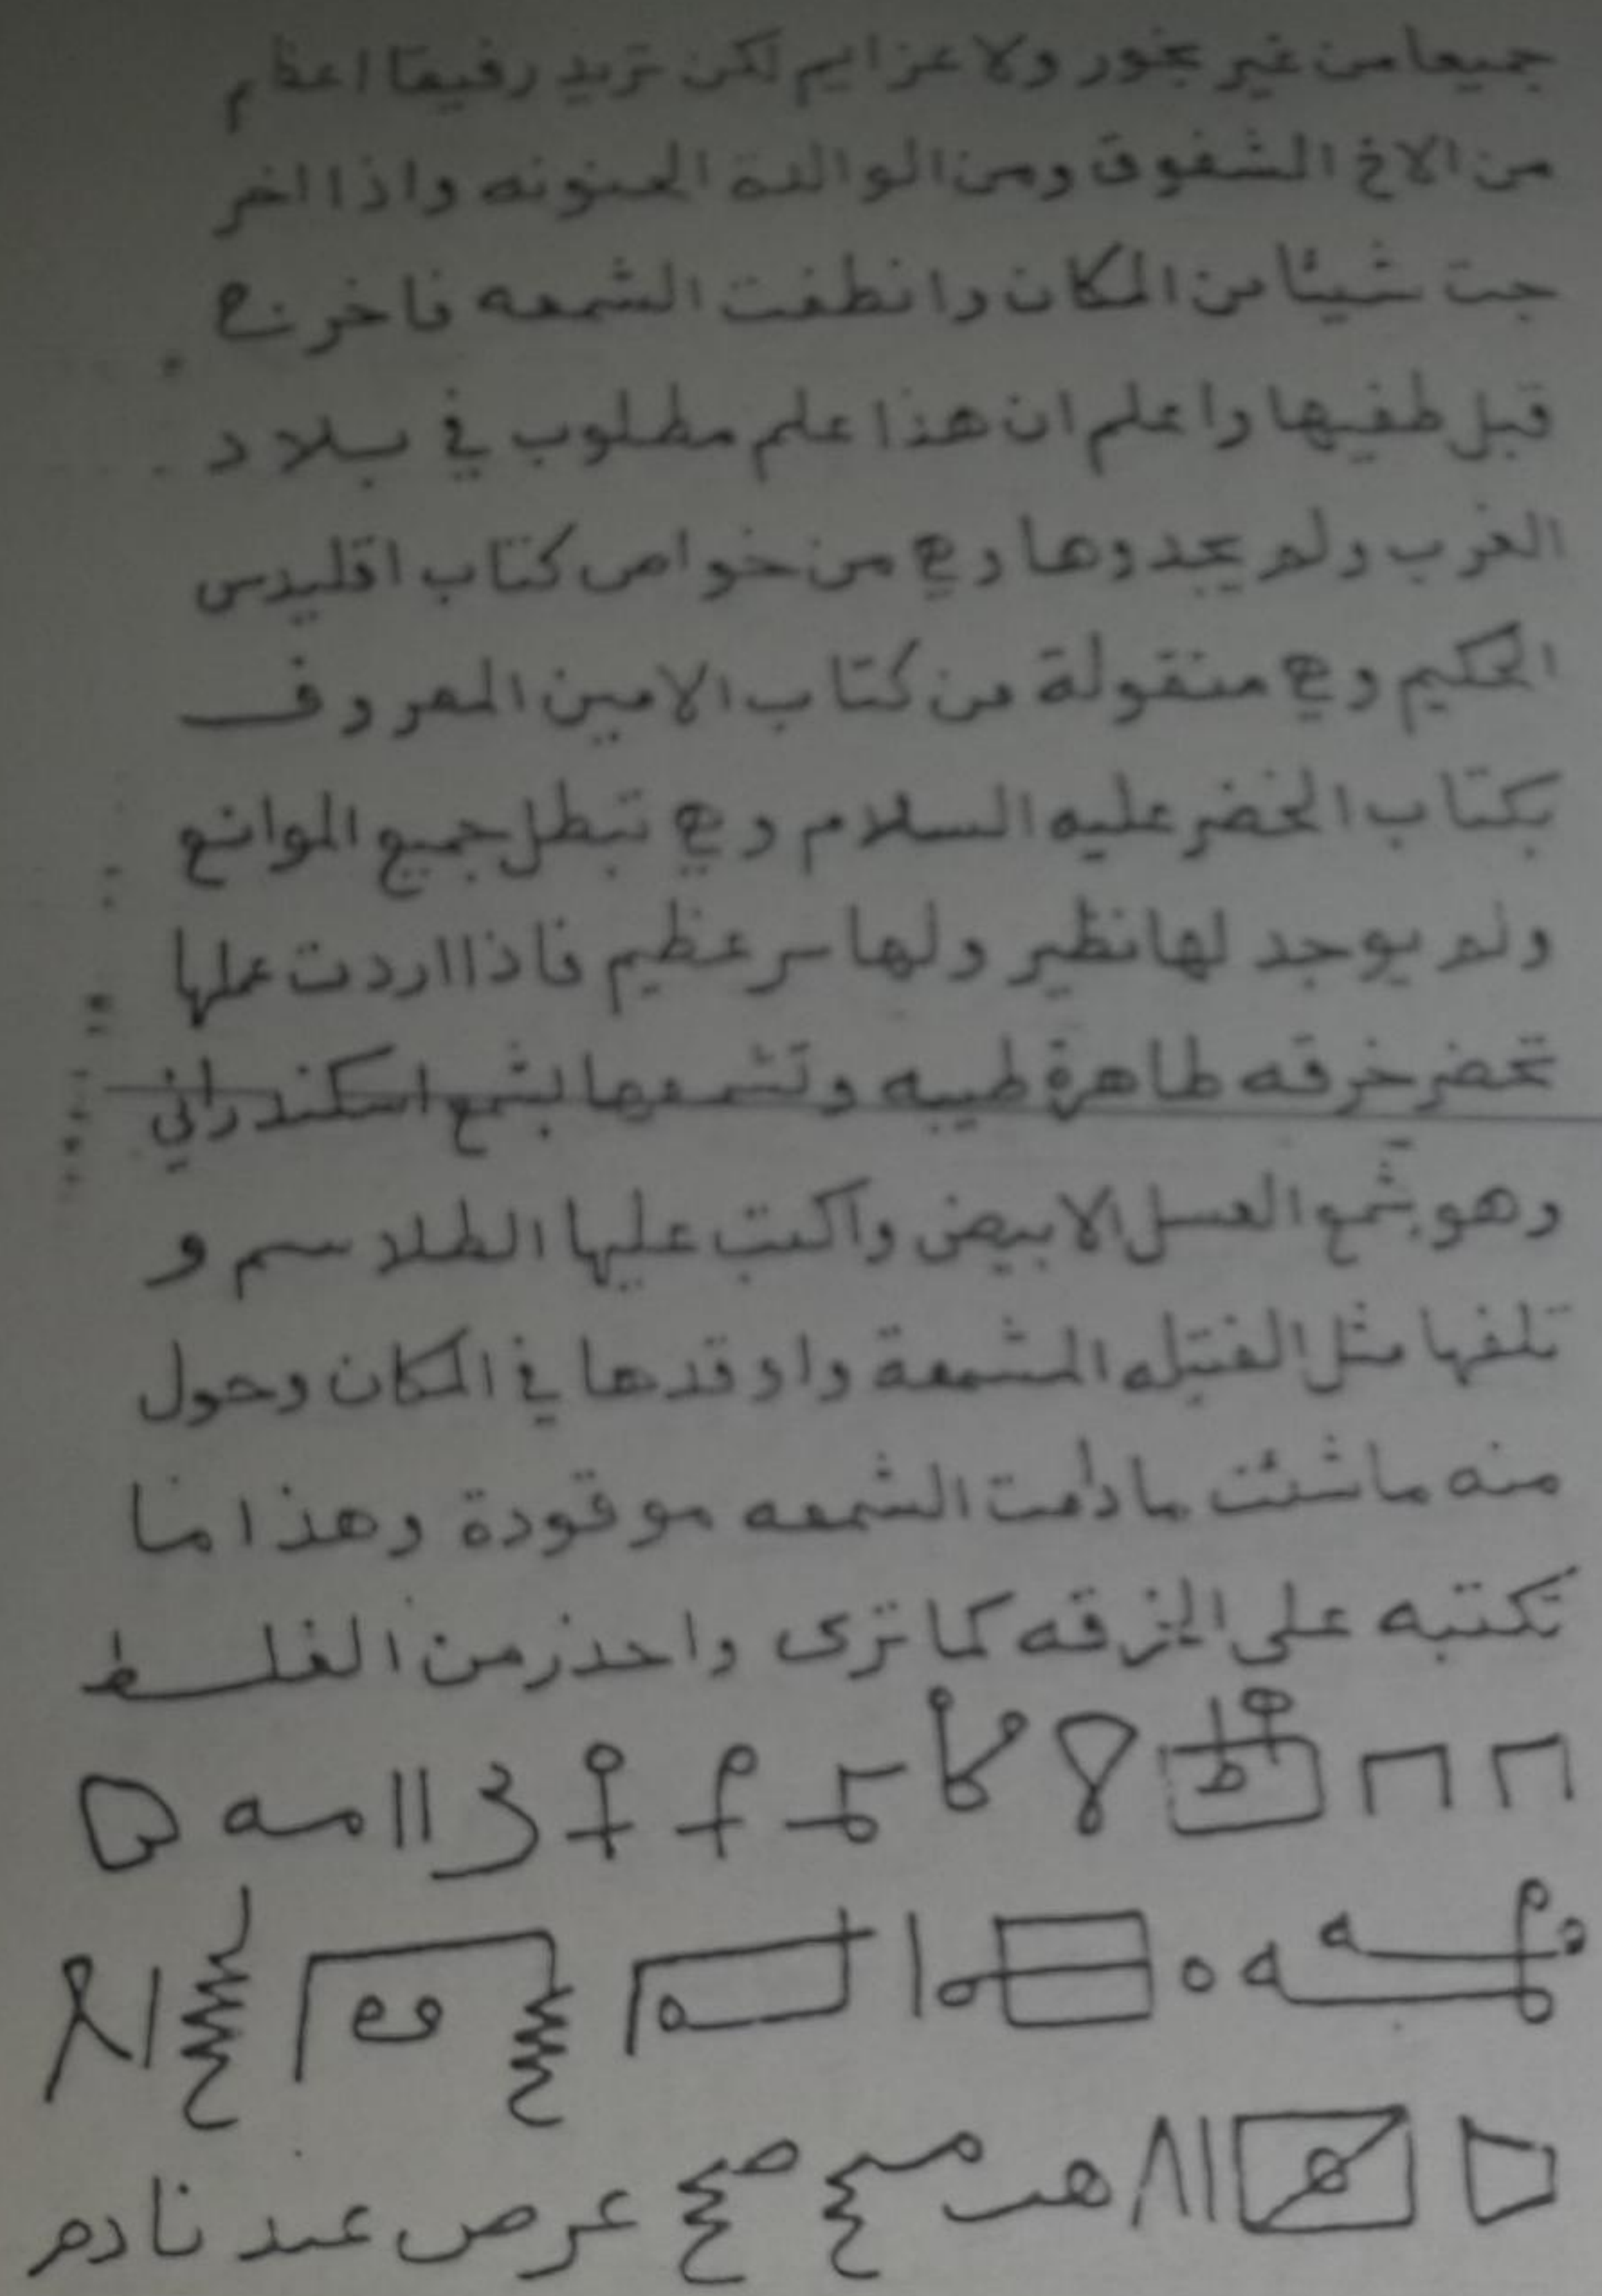 جميعا من غير بخور ولا عزايم لكن تريد رفيقا اعظم
من الاخ الشفوق ومن الوالدة الحنونه واذا اخر
جت شيئا من المكان وانطفت الشمعه فاخرج
قبل طفيها واعلم ان هذا علم مطلوب في بلاد
الغرب ولم يجدوها وهي من خواص كتاب اقليدس
الحكيم وهي منقولة من كتاب الامين المعروف
بكتاب الخضر عليه السلام وهي تبطل جميع الموانع
ولم يوجد لها نظير ولها سر عظيم فاذا اردت عملها
تحضر خرقه طاهرة طيبه وتشمعها بشمع اسكندراني
وهو شمع العسل الابيض واكتب عليها الطلاسم و
تلفها مثل الفتيله المشمعة واوقدها في المكان وحول
منه ما شئت ما دامت الشمعه موقودة وهذا ما
تكتبه على الخرقه كما ترى واحذر من الغلط
عرص عند نادم